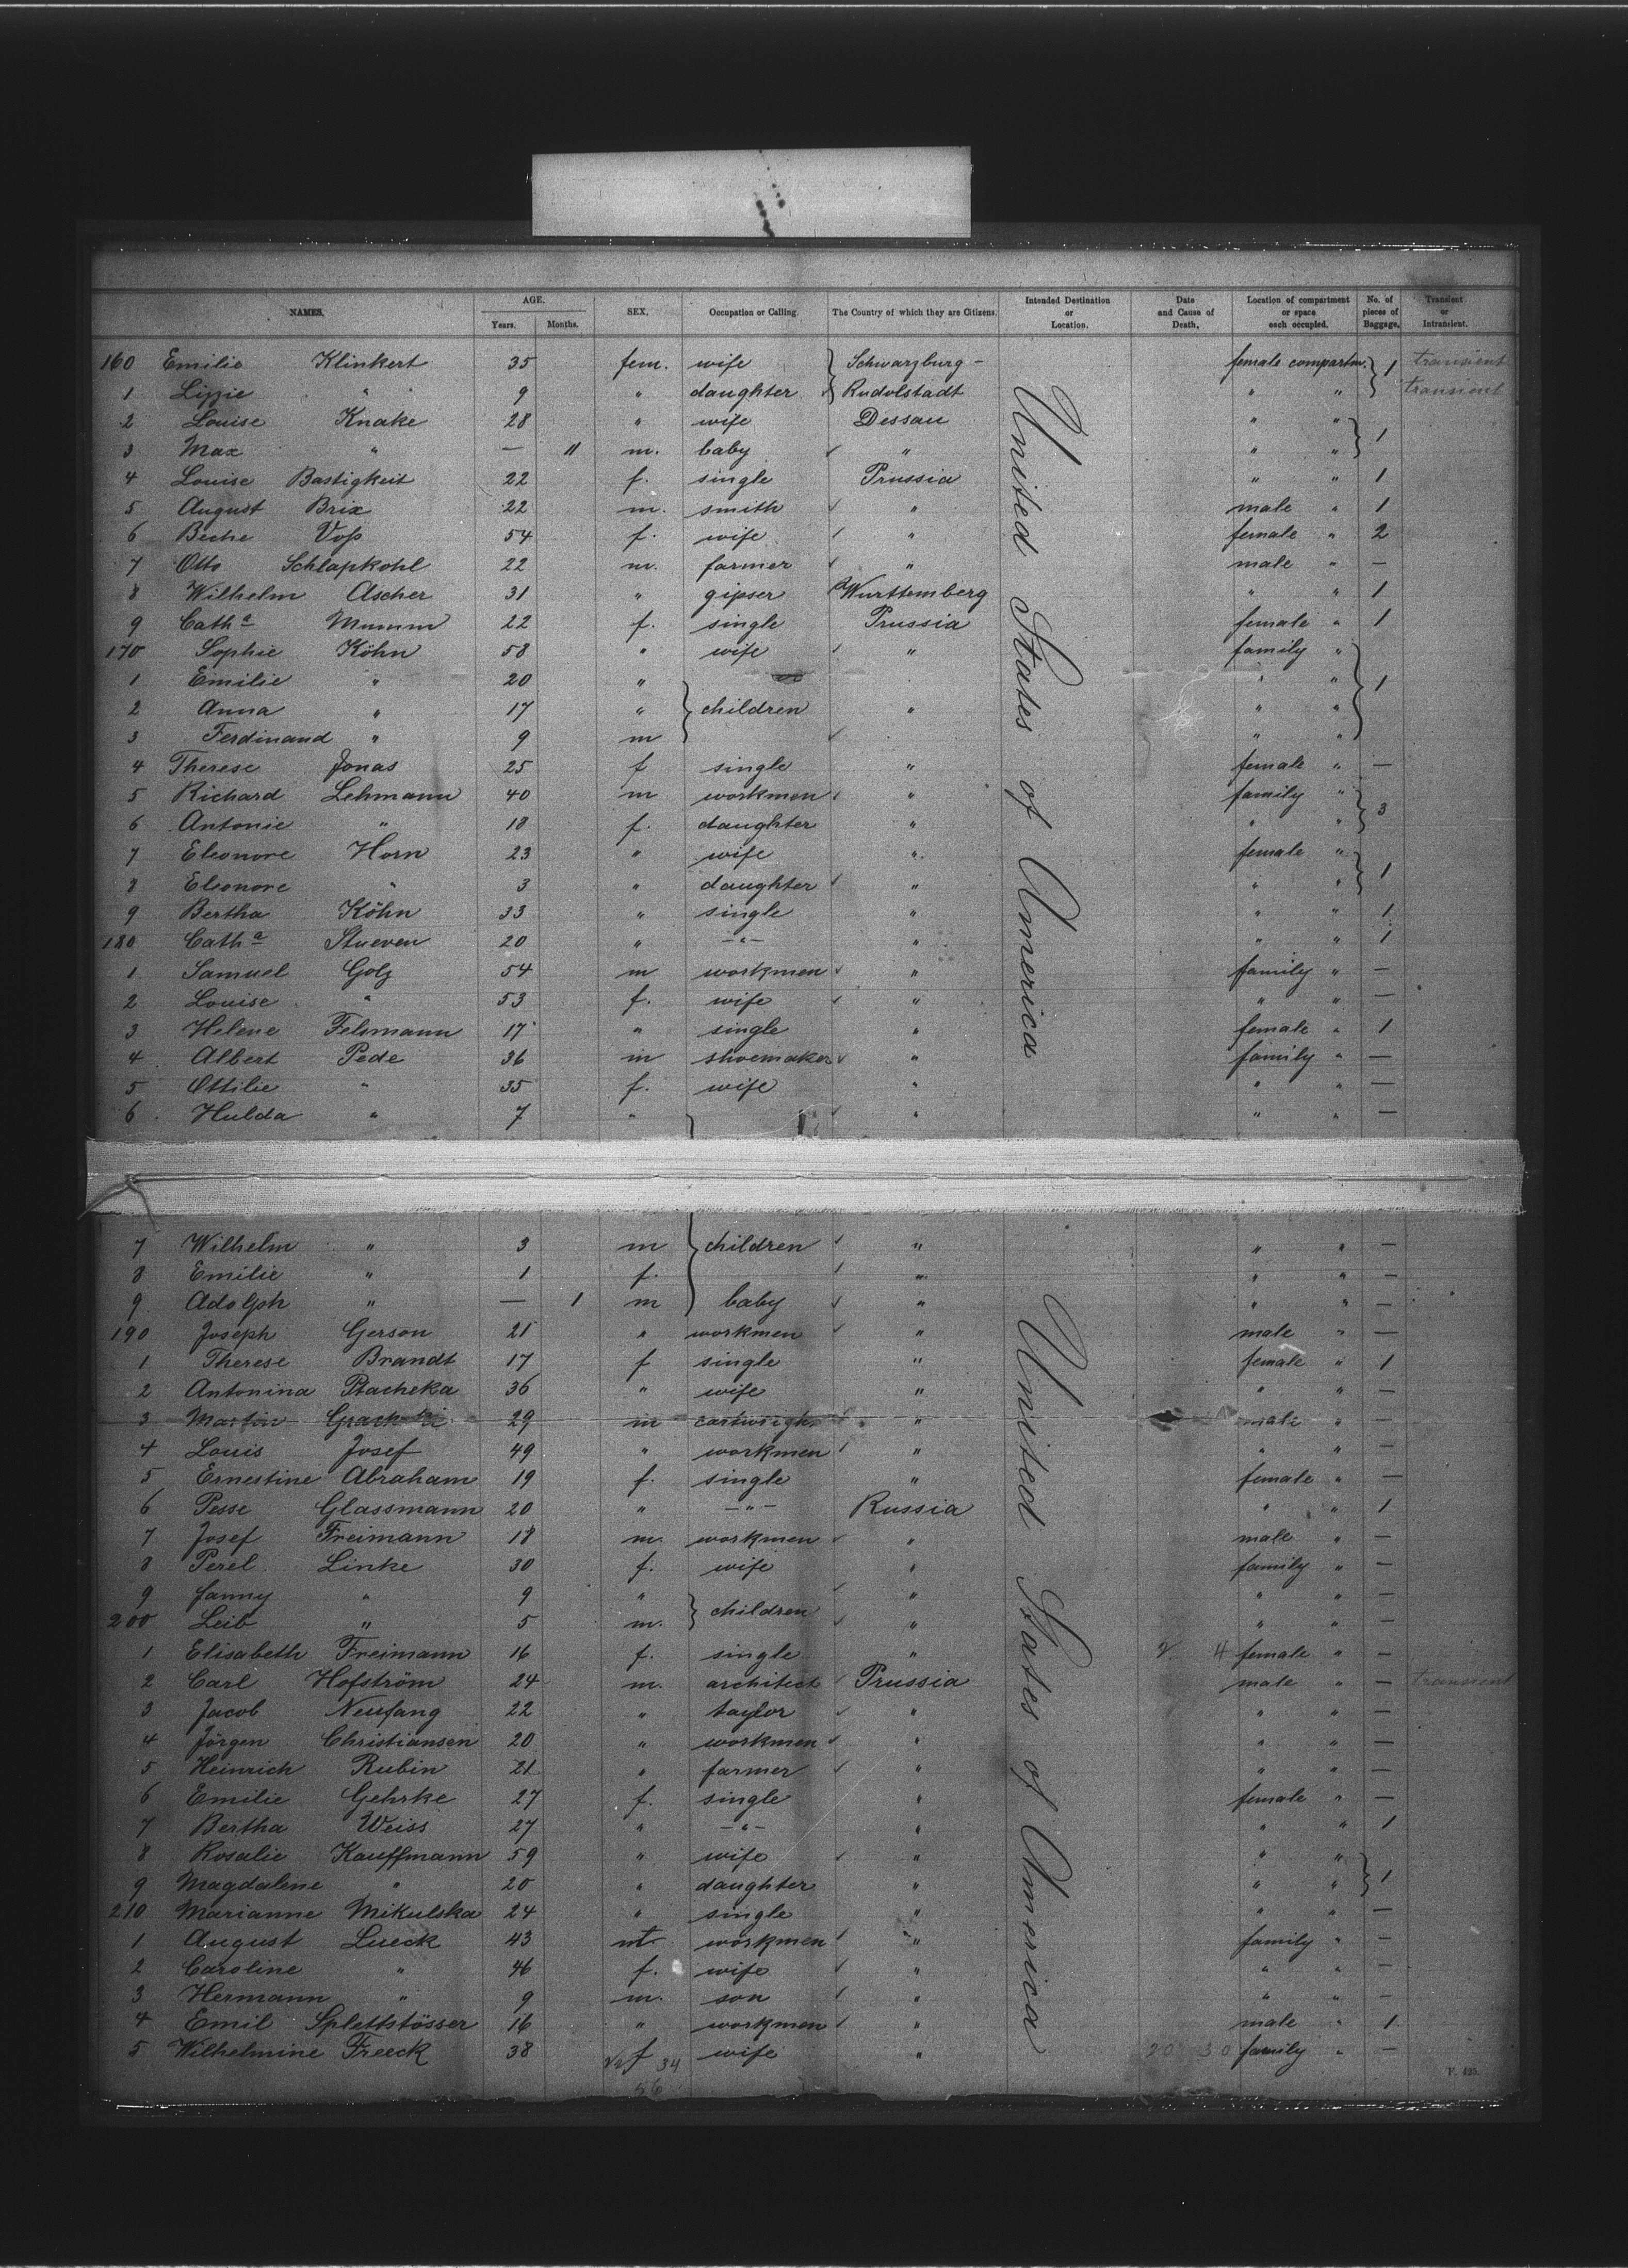 NAMES. AGE. Years. Months. SEX. Occupation or Calling. The Country of which they are Citizens. Intended Destination or Location. Date and Cause of Death. Location of compartment or space each occupied. No. of pieces of Baggage. Transient or Intransient.
160 Emilie Klinkert 35 fem. wife Schwarzburg- female compartm. 1 transient
1 Lizzie " 9 " daughter Rudolstadt " " transient
2 Louise Knake 28 " wife Dessau " " 1
3 Max " — 11 m. baby " " "
4 Louise Bastigkeit 22 f. single Prussia " " 1
5 August Brix 22 m. smith " male " 1
6 Voß 54 f. wife " female " 2
7 Otto Schlapkohl 22 m. farmer " male " —
8 Wilhelm Ascher 31 " gipser Wurttemberg " " 1
9 Catha Mumm 22 f. single Prussia female " 1
170 Sophie Köhn 58 " wife " family "
1 Emilie " 20 " " " 1
2 Anna " 17 " children " " "
3 Ferdinand " 9 m " "
4 Therese Jonas 25 f single " female " —
5 Richard Lehmann 40 m workmen " family " 3
6 Antonie " 18 f. daughter " " "
7 Eleonore Horn 23 " wife " female " 1
8 Eleonore " 3 " daughter " " "
9 Bertha Köhn 33 " single " " " 1
180 Catha Stueven 20 " -"- " " " 1
1 Samuel Golz 54 m workmen " family " —
2 Louise " 53 f. wife " " " —
3 Helene Felsmann 17 " single " female " 1
4 Albert Pede 36 m shoemaker " family " —
5 Ottilie " 35 f. wife " " " —
6 Hulda " 7 " " " " —
United States of America
7 Wilhelm " 3 m children " " " —
8 Emilie " 1 f. " " " —
9 Adolph " — 1 m baby " " " —
190 Joseph Gerson 21 " workmen " male " —
1 Therese Brandt 17 f single " female " 1
2 Antonina Ptacheka 36 " wife " " " —
3 Martin 29 m cartwright " male " —
4 Louis Josef 49 " workmen " " " —
5 Ernestine Abraham 19 f. single " female " —
6 Pesse Glassmann 20 " -"- Russia " " 1
7 Josef Freimann 18 m. workmen " male " —
8 Perel Linke 30 f. wife " family " —
9 Fanny " 9 " children " " " —
200 Leib " 5 m. " " " —
1 Elisabeth Freimann 16 f. single " 2 4 female " —
2 Carl Hofström 24 m. architect Prussia male " — transient
3 Jacob Neufang 22 " taylor " " " —
4 Jörgen Christiansen 20 " workmen " " " —
5 Heinrich Rubin 21 " farmer " " " —
6 Emilie Gehrke 27 f. single " female " —
7 Bertha Weiss 27 " -"- " " " 1
8 Rosalie Kauffmann 59 " wife " " " 1
9 Magdalene " 20 " daughter " " "
210 Marianne Mikulska 24 " single " " " —
1 August Lueck 43 m workmen " family " —
2 Caroline " 46 f. wife " " " —
3 Hermann " 9 m. son " " " —
4 Emil Splettstösser 16 " workmen " male " 1
5 Wilhelmine Freeck 38 f 34 wife " 20 30 family " —
56
United States of America
F. 495.